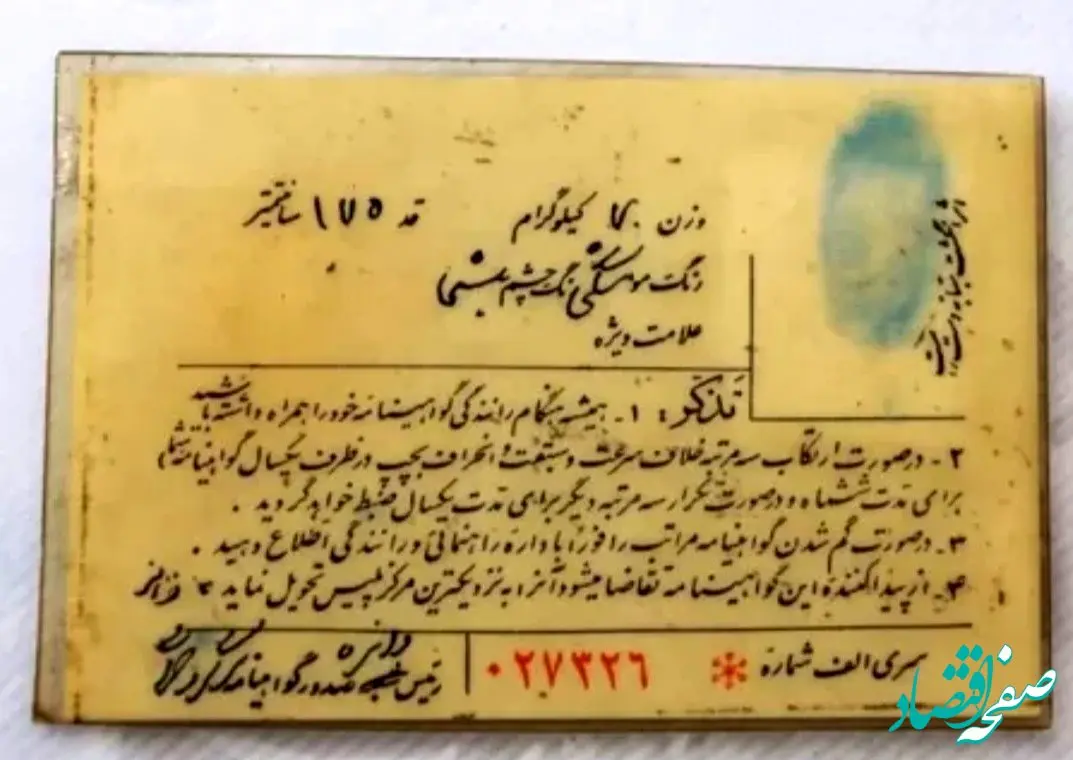 وزن ۷۰ کیلوگرام قد ۱۷۵ سانتیمتر
رنگ مو مشکی رنگ چشم میشی
علامت ویژه
اثر انگشت سبابه دست راست
تذکر: ۱ـ همیشه هنگام رانندگی گواهینامه خود را همراه داشته باشید
۲ـ درصورت ارتکاب سه مرتبه خلاف سرعت و سبقت و انحراف بچپ در ظرف یکسال گواهینامه شما
برای مدت ششماه و درصورت تکرار سه مرتبه دیگر برای مدت یکسال ضبط خواهد گردید .
۳ـ درصورت گم شدن گواهینامه مراتب را فوراً باداره راهنمائی و رانندگی اطلاع دهید .
۴ـ از پیدا کننده این گواهینامه تقاضا میشود آنرا به نزدیکترین مرکز پلیس تحویل نماید
سری الف شماره * ۰۲۷۳۲۶
رئیس دایره صدور گواهینامه
صفحه اقتصاد